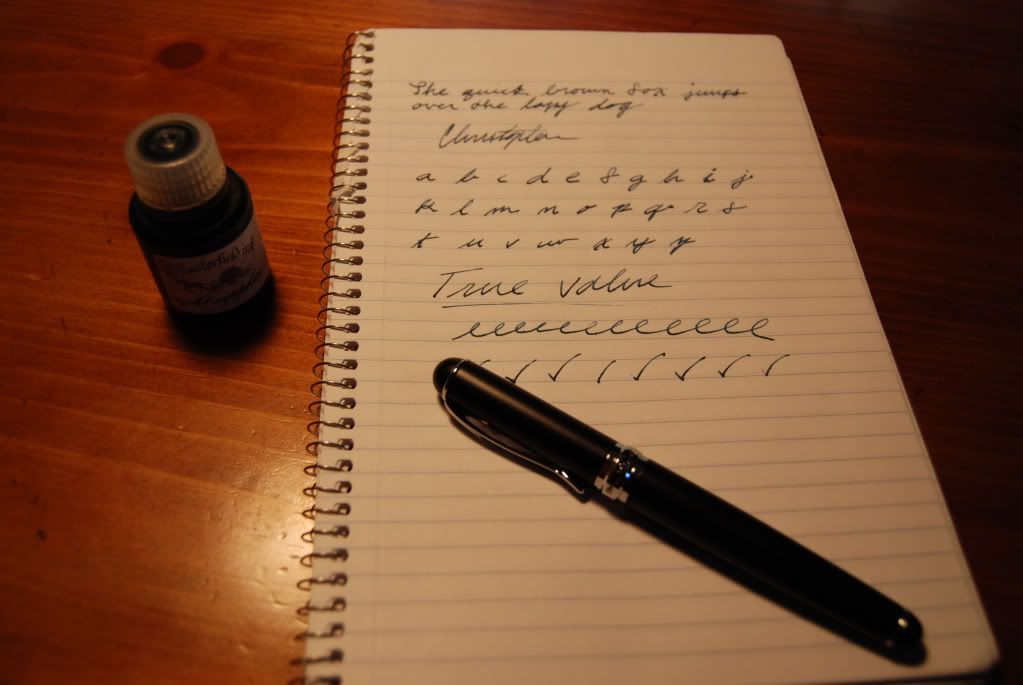 The quick brown fox jumps
over the lazy dog
Christopher
a b c d e f g h i j
k l m n o p q r s
t u v w x y z
True Value
Chesterfield ink